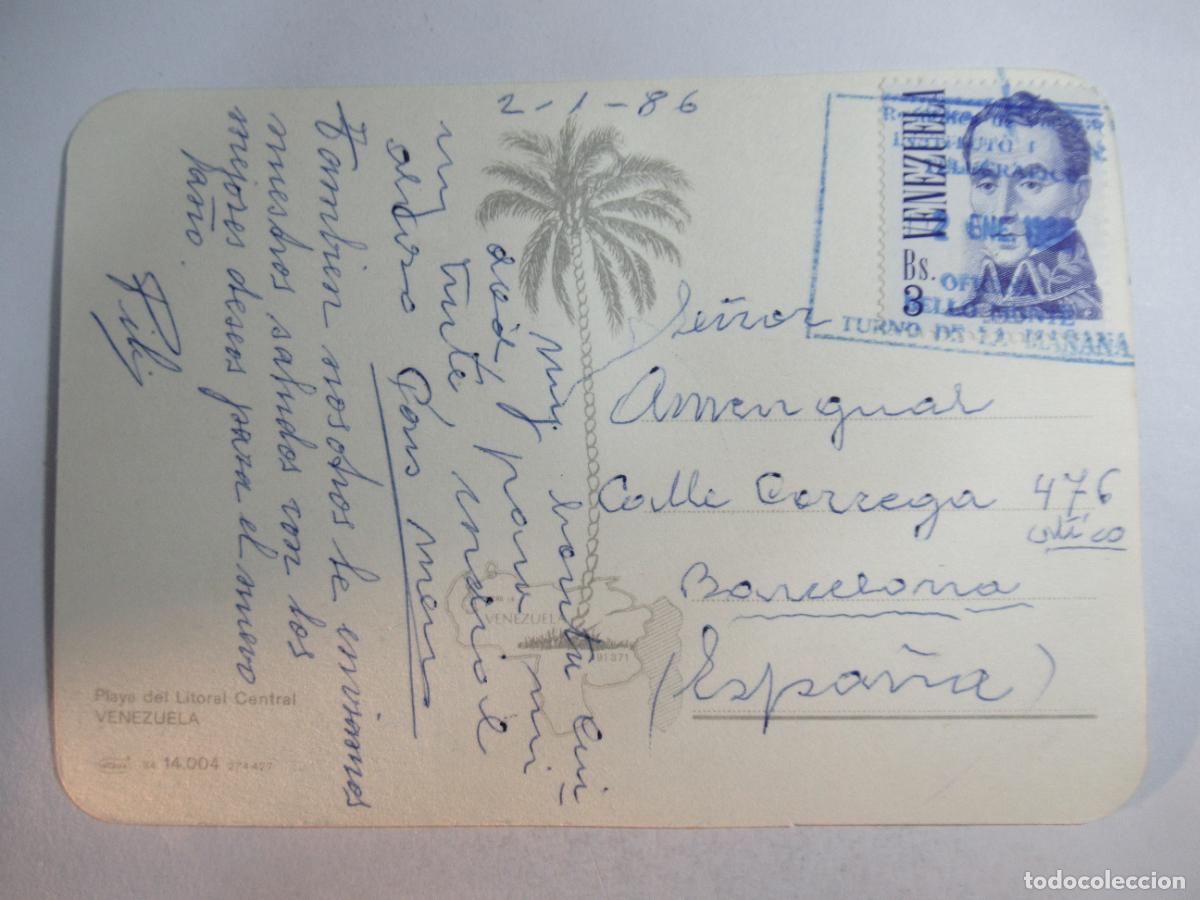 2-1-86
my bonita ciu-
dad, para mi
tuite, india l
otoso Pons mens
Tambien nosotros te enviamos
nuestros saludos con los
mejores deseos para el nuevo
año.
Pili
Señor
Amengual
Calle Correga 476
ático
Barcelona
(España)
VENEZUELA
Bs. 3
INSTITUTO
ENE
OFICINA
BELLO MONTE
TURNO DE LA MAÑANA
VENEZUELA
91371
Playa del Litoral Central
VENEZUELA
84 14.004 274427
todocoleccion